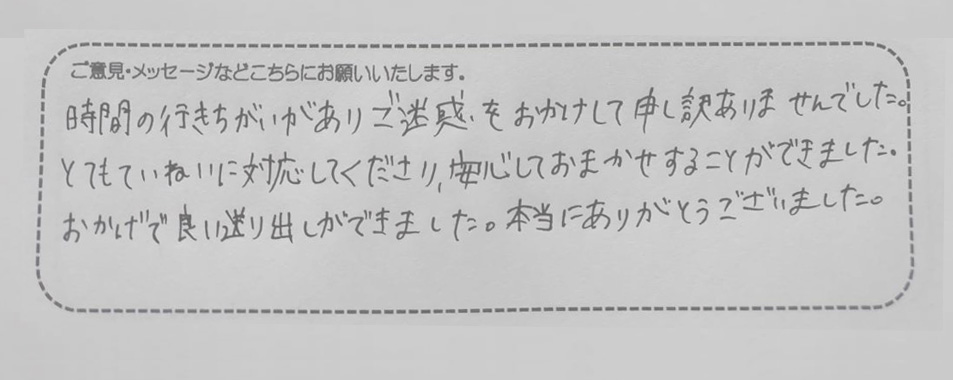 ご意見・メッセージなどこちらにお願いいたします。
時間の行きちがいがありご迷惑をおかけして申し訳ありませんでした。
とてもていねいに対応してくださり、安心しておまかせすることができました。
おかげで良い送り出しができました。本当にありがとうございました。